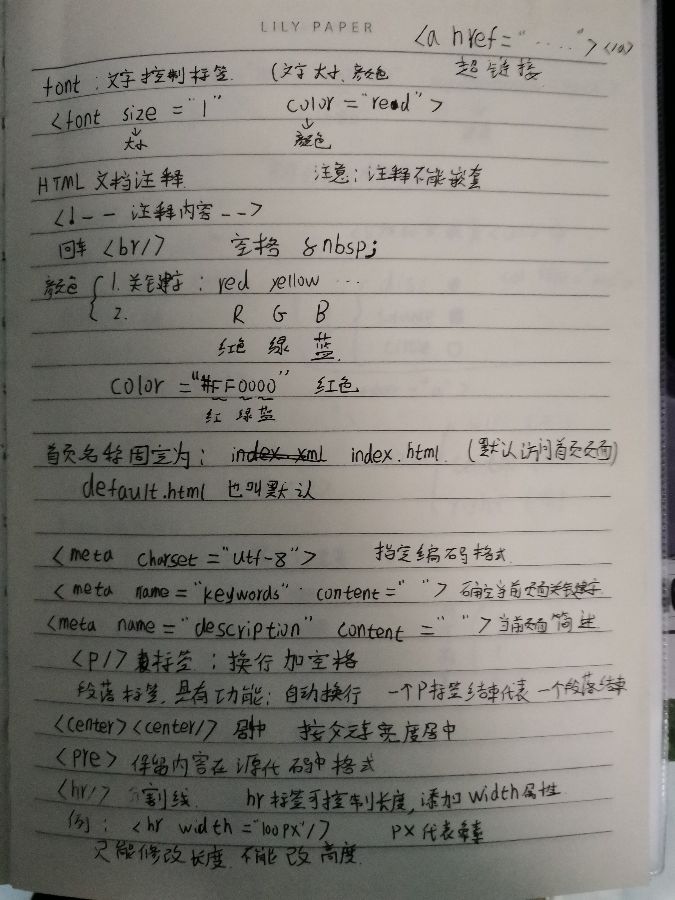 LILY PAPER
<a href="·····"></a>
font：文字控制标签.（文字大小、颜色 超链接
<font size="1" color="read">
大小 颜色
HTML 文档注释. 注意：注释不能嵌套
<!-- 注释内容 -->
回车 <br/> 空格 &nbsp;
颜色 { 1.关键字：red yellow ...
2. R G B
红色 绿 蓝.
color="#FF0000" 红色
红 绿 蓝
首页名称固定为：index.xml index.html.（默认访问首页页面）
default.html 也叫默认
<meta charset="utf-8"> 指定编码格式.
<meta name="keywords" content=" "> 确定当前页面关键字.
<meta name="description" content=" "> 当前页面简述
<p/> 标签：换行加空格
段落标签，具有功能：自动换行 一个P标签结束代表一个段落结束
<center><center/> 居中 按父元素宽度居中
<pre> 保留内容在源代码中格式
<hr/> 分割线. hr标签可控制长度，添加width属性.
例：<hr width="100PX"/> PX代表像素
只能修改长度.不能改高度.